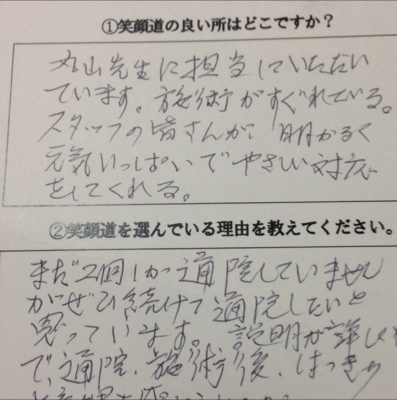 ①笑顔道の良い所はどこですか？
丸山先生に担当していただい
ています。施術がすぐれている。
スタッフの皆さんが、明かるく
元気いっぱいでやさしい対応
をしてくれる。
②笑顔道を選んでいる理由を教えてください。
まだ2回しか通院していません
がぜひ続けて通院したいと
思っています。説明が詳しく
で、通院、施術後、はっきり